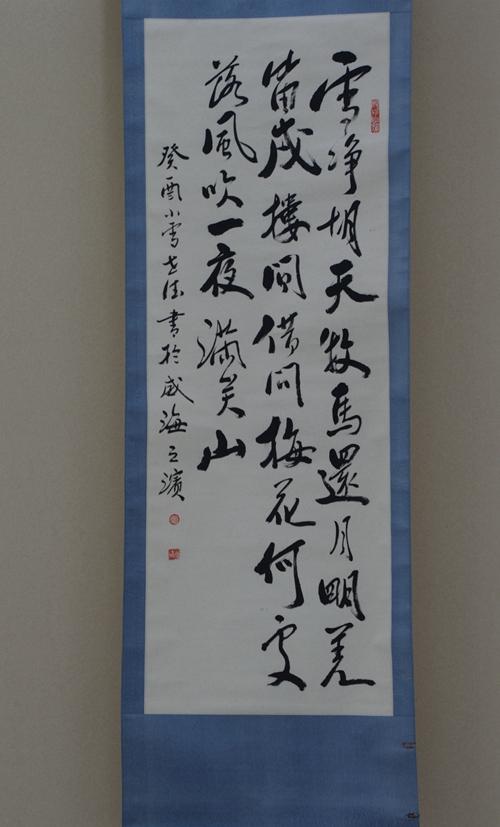 雪净胡天牧馬還月明羌
笛戍樓间借问梅花何處
落風吹一夜滿关山
癸酉小雪書於威海之濱